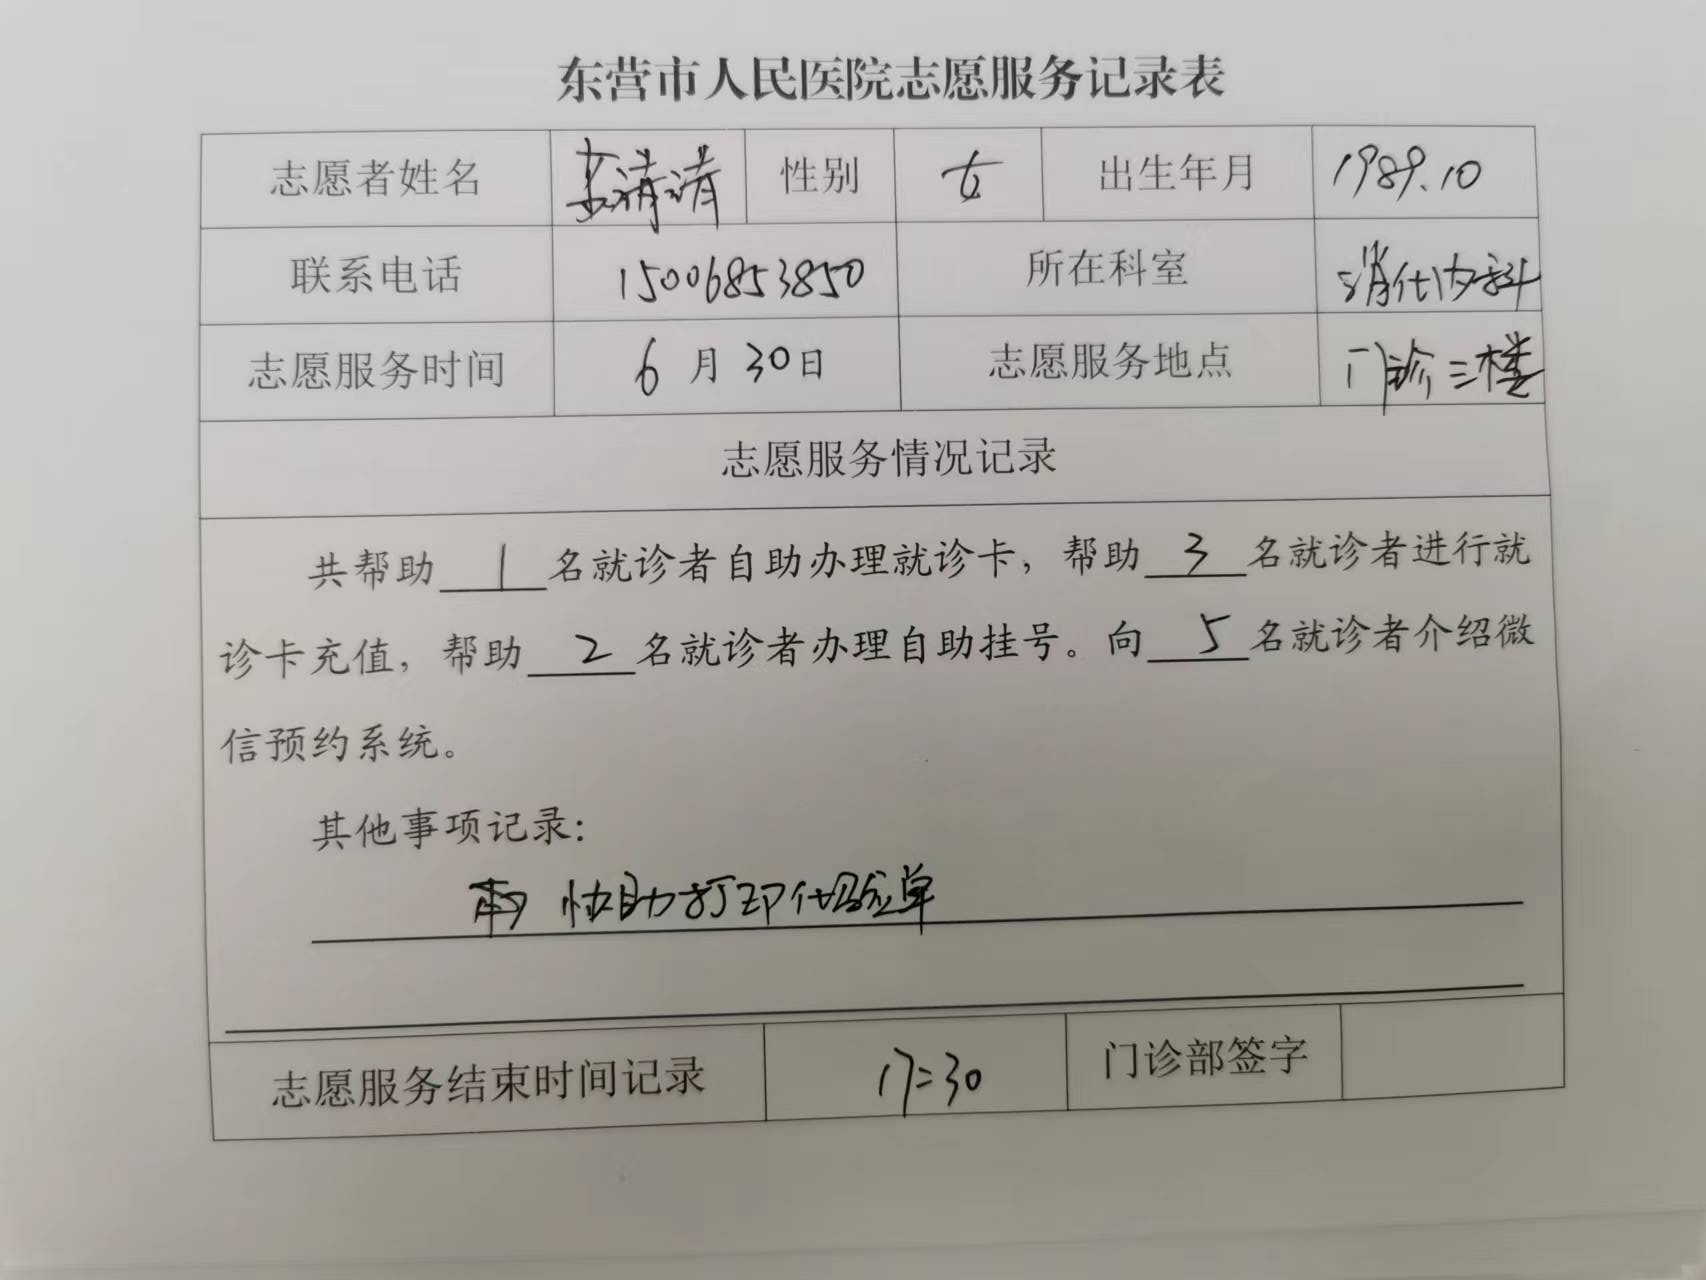 东营市人民医院志愿服务记录表
志愿者姓名 清清 性别 女 出生年月 1989.10
联系电话 15006853850 所在科室 消化内科
志愿服务时间 6月30日 志愿服务地点 门诊三楼
志愿服务情况记录
共帮助1名就诊者自助办理就诊卡，帮助3名就诊者进行就
诊卡充值，帮助2名就诊者办理自助挂号。向5名就诊者介绍微
信预约系统。
其他事项记录：
协助打印化验单
志愿服务结束时间记录 17:30 门诊部签字